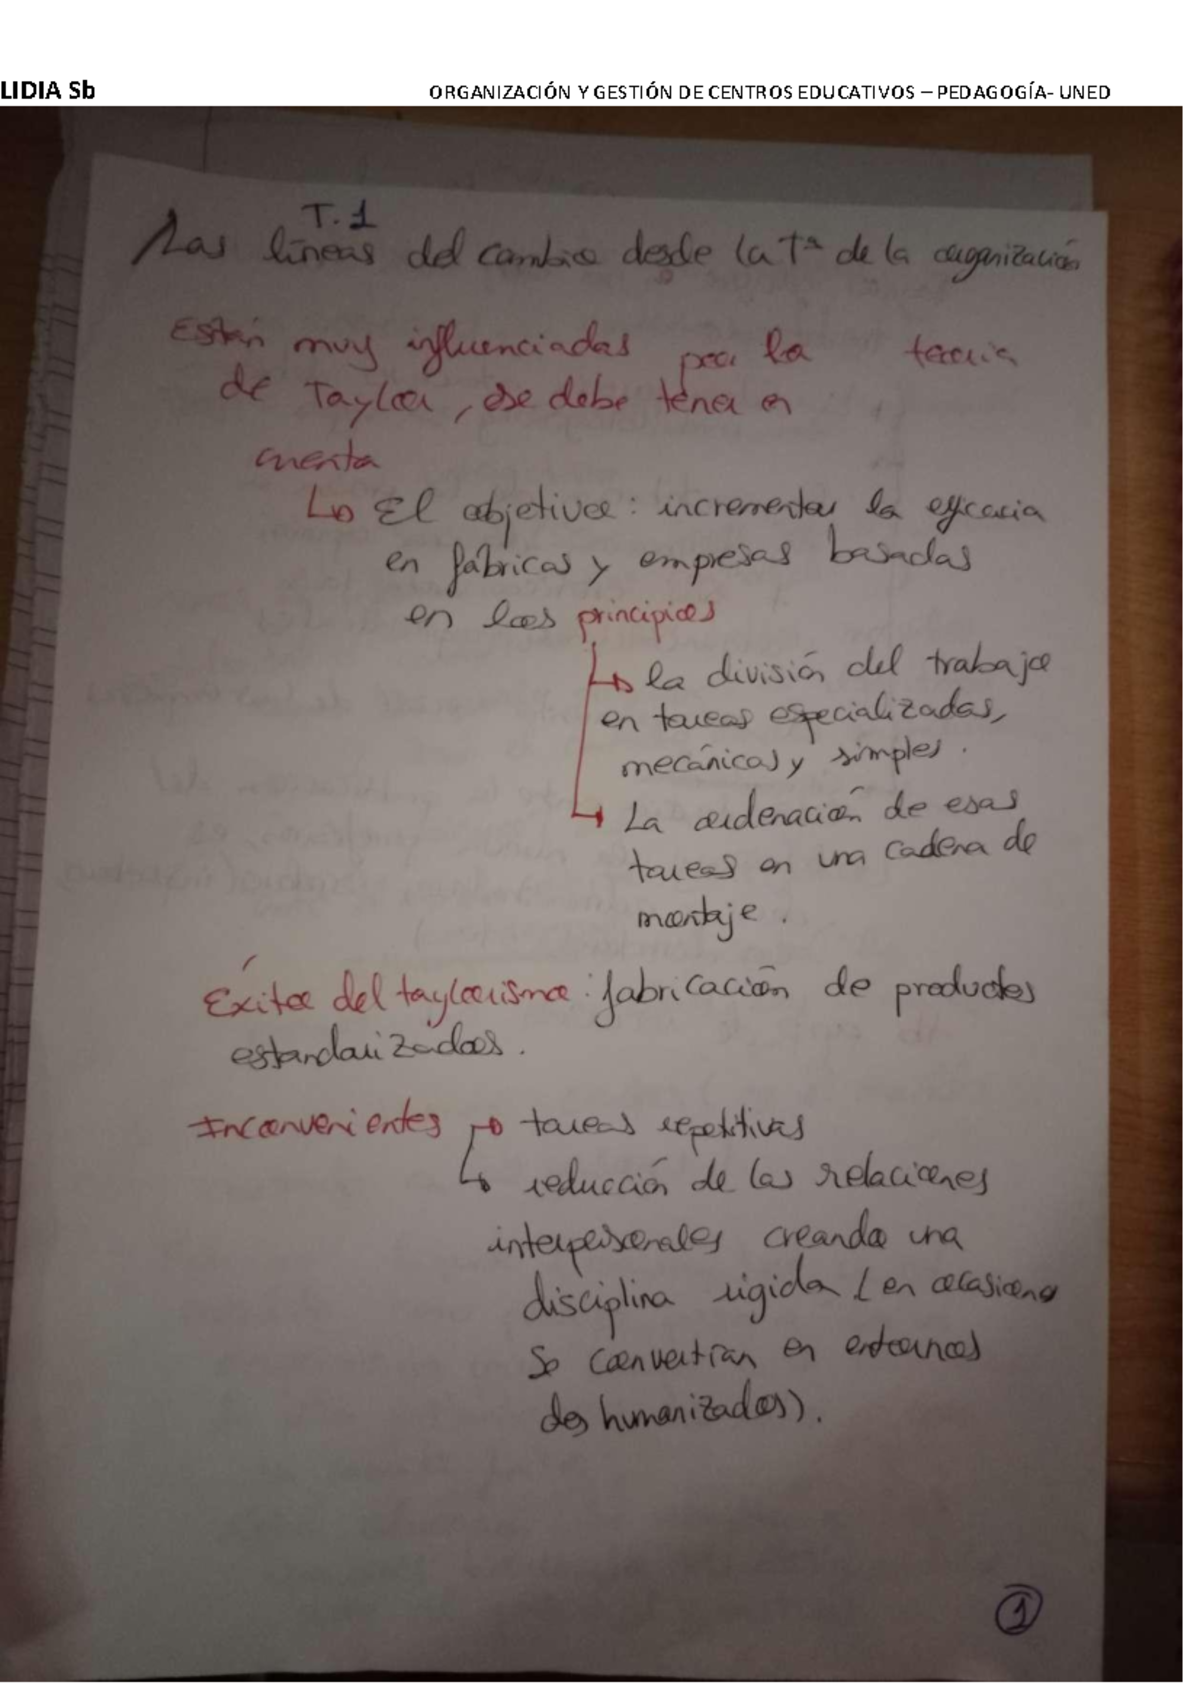 LIDIA Sb
ORGANIZACIÓN Y GESTIÓN DE CENTROS EDUCATIVOS – PEDAGOGÍA- UNED
T.1
Las líneas del cambio desde la Tª de la organización
Están muy influenciadas por la teoría
de Taylor, se debe tener en
cuenta
↳ El objetivo: incrementar la eficacia
en fábricas y empresas basadas
en los principios
↳ la división del trabajo
en tareas especializadas,
mecánicas y simples.
↳ La ordenación de esas
tareas en una cadena de
montaje.
Éxito del taylorismo: fabricación de productos
estandarizados.
Inconvenientes → tareas repetitivas
↳ reducción de las relaciones
interpersonales creando una
disciplina rigida (en ocasiones
se convertían en entornos
deshumanizados).
1